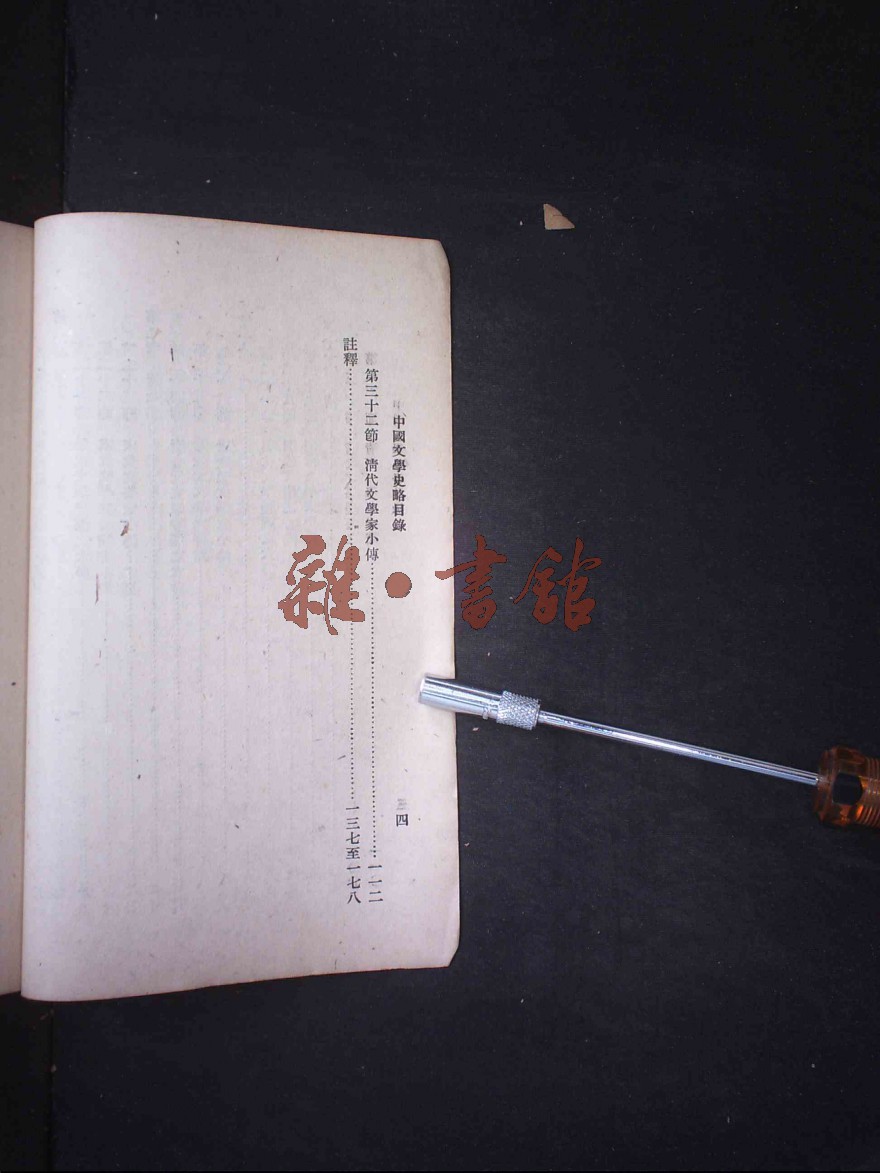 中國文學史略目錄
四
第三十二節 清代文學家小傳……一一二
註釋……一三七至一七八
雜・書館